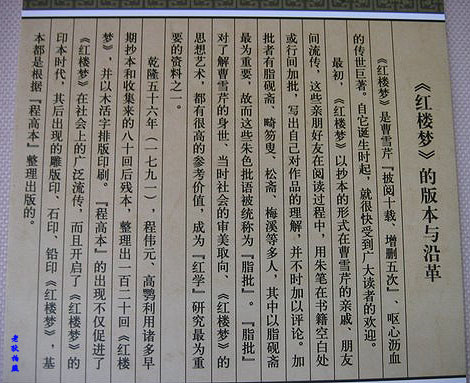 《红楼梦》的版本与沿革
《红楼梦》是曹雪芹『披阅十载、增删五次』、呕心沥血
的传世巨著。自它诞生时起，就很快受到广大读者的欢迎。
最初，《红楼梦》以抄本的形式在曹雪芹的亲戚、朋友
间流传，这些亲朋好友在阅读过程中，用朱笔在书籍空白处
或行间加批，写出自己对作品的理解，并不时加以评论。加
批者有脂砚斋、畸笏叟、松斋、梅溪等多人，其中以脂砚斋
最为重要，故而这些朱色批语被统称为『脂批』。『脂批』
对了解曹雪芹的身世、当时社会的审美取向、《红楼梦》的
思想艺术，都有很高的参考价值，成为『红学』研究最为重
要的资料之一。
乾隆五十六年（一七九一），程伟元、高鹗利用诸多早
期抄本和收集来的八十回后残本，整理出一百二十回《红楼
梦》，并以木活字排版印刷。『程高本』的出现不仅促进了
《红楼梦》在社会上的广泛流传，而且开启了《红楼梦》的
印本时代，其后出现的雕版印、石印、铅印《红楼梦》，基
本都是根据『程高本』整理出版的。